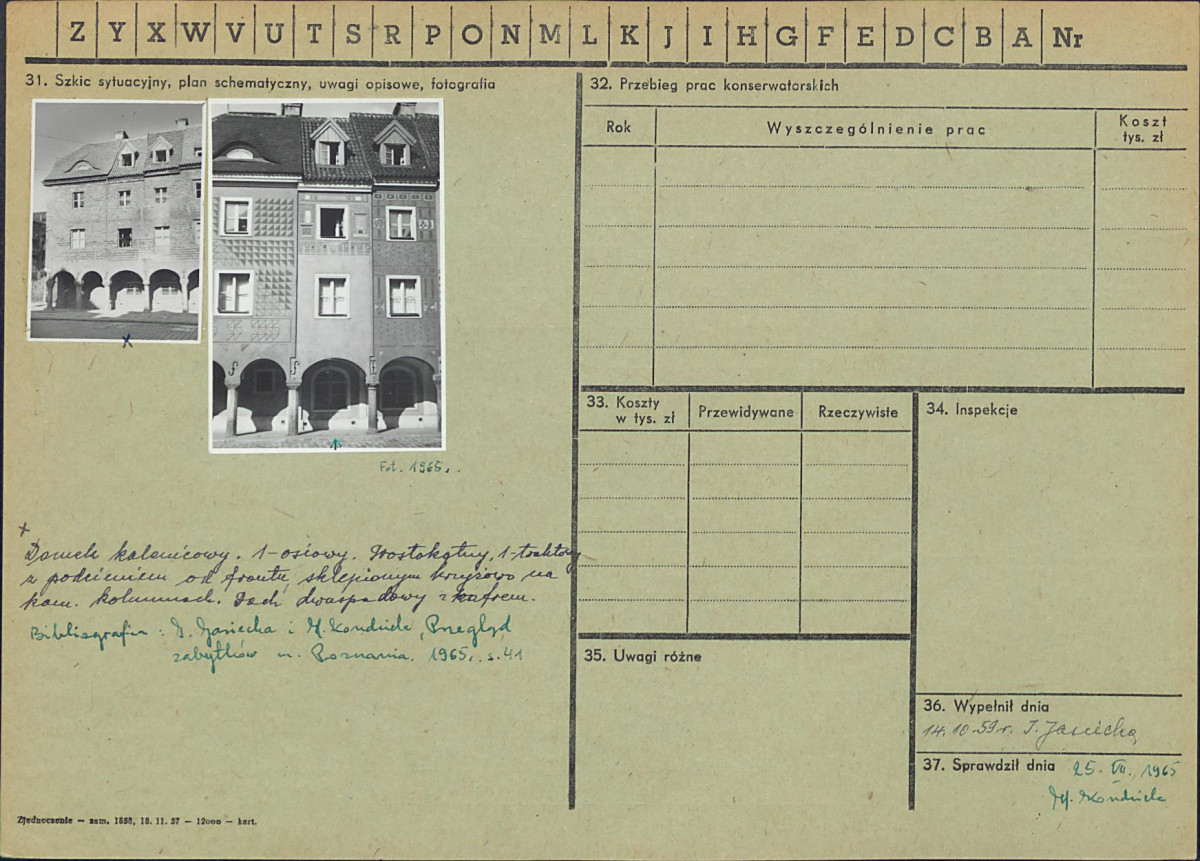 Z Y X W V U T S R P O N M L K J I H G F E D C B A Nr
31. Szkic sytuacyjny, plan schematyczny, uwagi opisowe, fotografia
Fot. 1965.
x
Domek kalenicowy. 1-osiowy. Prostokątny, 1-traktowy
z podcieniem od frontu, sklepionym krzyżowo na
kam. kolumnach. Dach dwuspadowy z kafrem.
Bibliografia: I. Jasiecka i M. Kondziela, Przegląd
zabytków m. Poznania. 1965. s. 41
Zjednoczenie — zam. 1858, 18. 11. 57 — 12000 — kart.
32. Przebieg prac konserwatorskich
Rok Wyszczególnienie prac Koszt tys. zł
33. Koszty w tys. zł Przewidywane Rzeczywiste
34. Inspekcje
35. Uwagi różne
36. Wypełnił dnia
14.10.59 r. I. Jasiecka
37. Sprawdził dnia 25. VII. 1965